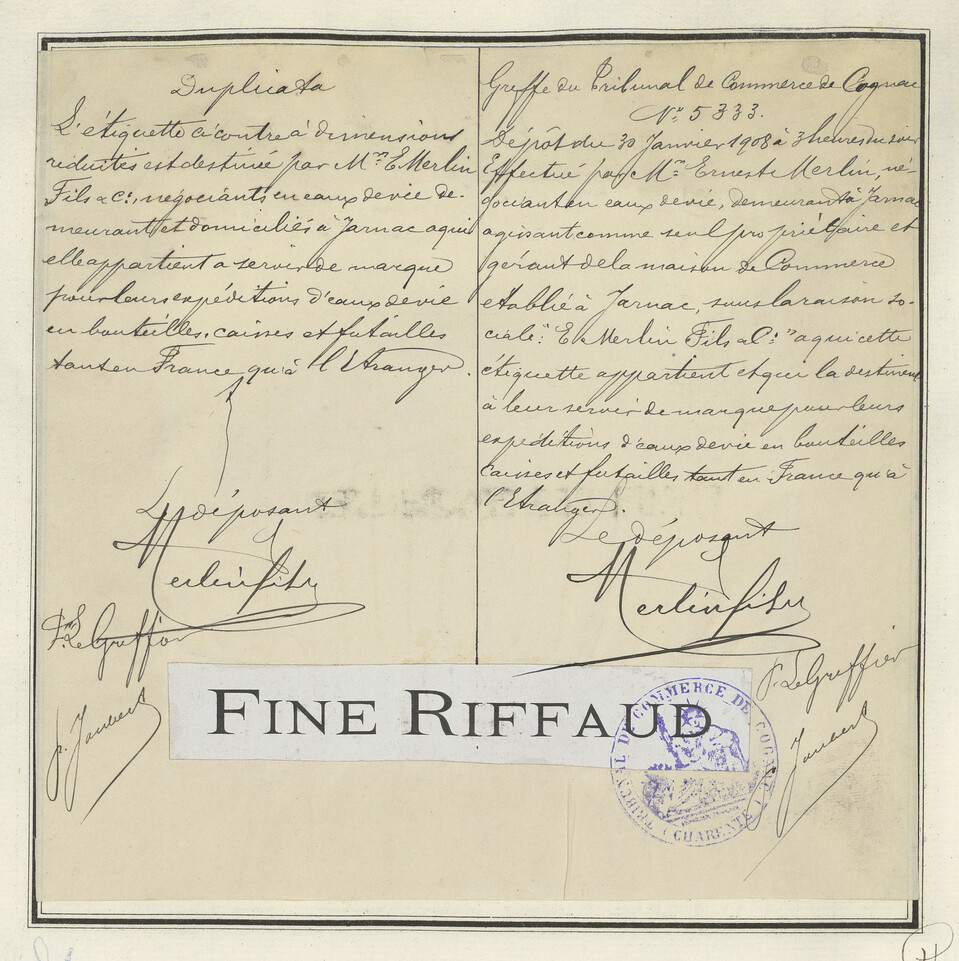 Duplicata
L'étiquette ci contre à dimensions
réduites est destinée par Mrs E. Merlin
Fils & Cie, négociants en eaux de vie de-
meurant et domiciliés à Jarnac a qui
elle appartient a servir de marque
pour leurs expéditions d'eaux de vie
en bouteilles, caisses et futailles
tant en France qu'à l'Etranger.
Le déposant
Merlin fils
P. Le Greffier
p. Joubert
Greffe du Tribunal de Commerce de Cognac
No. 5333.
Dépôt du 30 Janvier 1908 à 3 heures du soir
Effectué par Mr. Ernest Merlin, né-
gociant en eaux de vie, demeurant à Jarnac
agissant comme seul propriétaire et
gérant de la maison de Commerce
établie à Jarnac, sous la raison so-
ciale: "E. Merlin Fils & Cie" a qui cette
étiquette appartient et qui la destinent
à leur servir de marque pour leurs
expéditions d'eaux de vie en bouteilles
caisses et futailles tant en France qu'à
l'Etranger.
Le déposant
Merlin fils
P. Le Greffier
Joubert
FINE RIFFAUD
TRIBUNAL DE COMMERCE DE COGNAC
(CHARENTE)